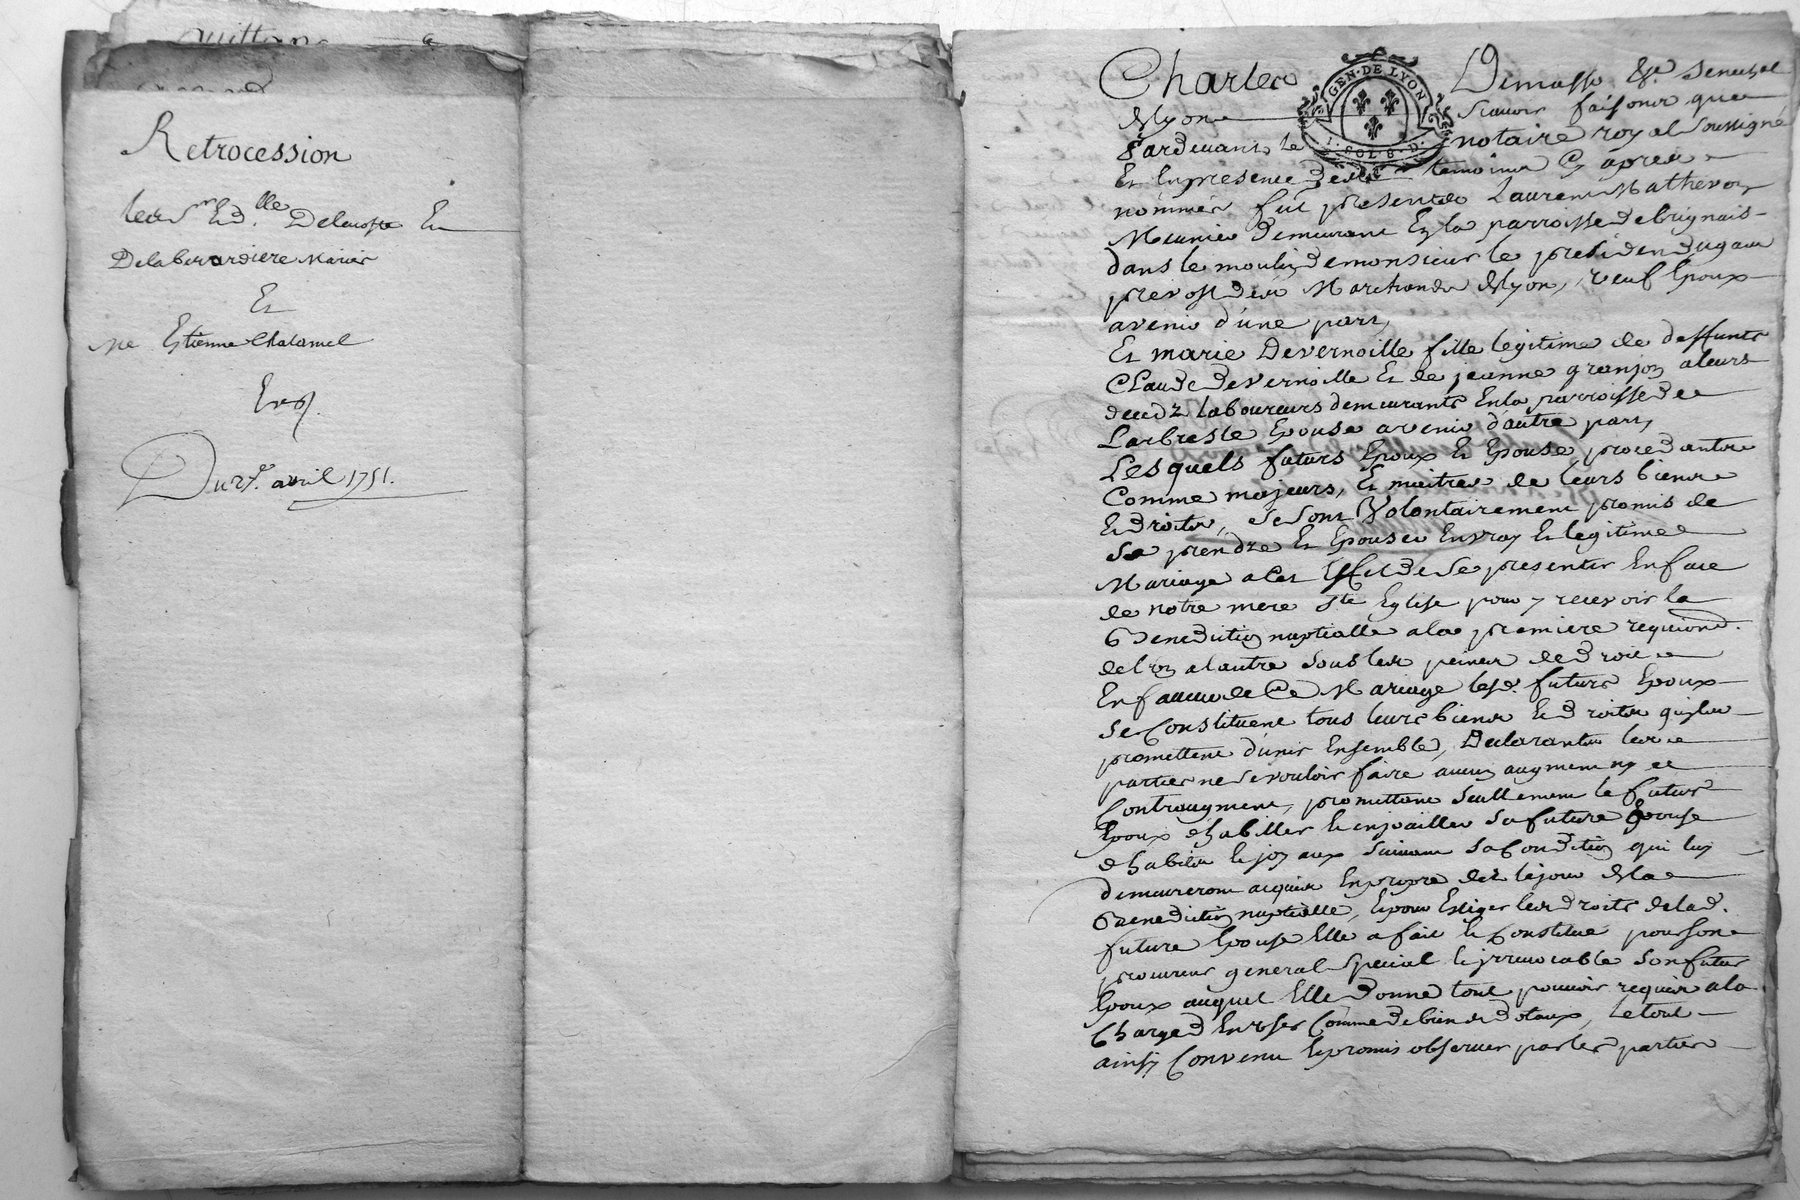 Quittance
Retrocession
les Sr. Et dlle. Et
Delaberardiere Mariés
Et
Me Estienne Chalamel
Du 27e. avril 1751.
GEN. DE LYON
1. SOL 8. D.
Charles Demasso &a. Senechal
de Lyon Scavoir faisons que
Pardevant le notaire royal soussigné
Et En presence des temoins Cy apres
nommés fut present Laurent Mathevon
Meunier demeurant En la parroisse de brignais
dans le moulin de monsieur le president dugaue
prevost des Marchands de Lyon, veuf Epoux
avenir d'une part,
Et marie Devernoille fille legitime de deffunts
Claude devernoille Et de jeanne granjon a leurs
deced2 laboureurs demeurants En la parroisse de
Larbresle Epouse avenir d'autre part,
Lesquels futurs Epoux Et Epouse procedants
Comme majeurs, Et maitres de leurs biens
Et droits, se sont Volontairement promis de
se prendre Et Epouser En vray Et legitime
Mariage a Cet Effet de se presenter En face
de notre mere Ste Eglise pour y recevoir la
Benediction nuptialle a la premiere requiond.
de l'un a l'autre sous les peines de droit
En faveur de Ce Mariage lesd. futurs Epoux
se Constituent tous leurs biens Et droits quils
promettent d'unir Ensemble, Declarants les
parties ne se vouloir faire aucun augment ny
Contraugment, promettant seullement le futur
Epoux d'habiller Et enjoailler sa future Epouse
d'habits Et joyaux suivant sa Condition qui luy
demeureront acquis En propre dez le jour de la
Benediction nuptialle, Et pour Exiger les droits de lad.
future Epouse Elle a fait Et Constitué pour son
procureur general special Et irrevocable son futur
Epoux auquel Elle donne tout pouvoir requis a la
Charge d'En user Comme de biens dotaux, le tout
ainsy Convenu Et promis observer par les parties